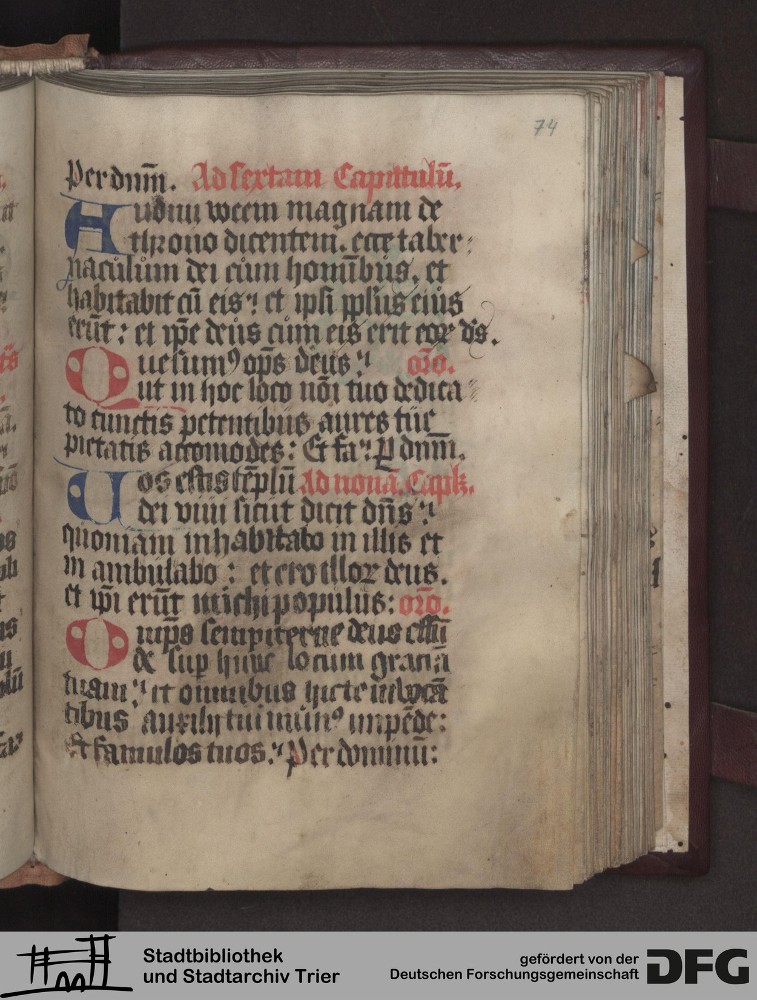 74
Per dnm̄. Ad sextam Capitulū.
Audiui vocem magnam de
throno dicentem. ecce taber-
naculum dei cum homībus. et
habitabit cū eis: et ipsi ppl̄us eius
erūt: et ip̄e deus cum eis erit eoꝝ ds̄.
Quesumꝰ ōps deus: or̄o.
ut in hoc loco nōi tuo dedica
to cunctis petentibus aures tue
pietatis accomodes: Et fa. P dnm̄.
Uos estis tēplū Ad nonā. Capl̄.
dei viui sicut dicit dn̄s:
quoniam inhabitabo in illis et
in ambulabo: et ero illoꝝ deus.
et ip̄i erūt michi populus: or̄o.
Om̄ps sempiterne deus effū
de sup hunc locum graciā
tuam: et omnibus hic te inuocā
tibus auxilii tui munꝰ impēde:
Et famulos tuos. Per dominū:
Stadtbibliothek
und Stadtarchiv Trier
gefördert von der
Deutschen Forschungsgemeinschaft
DFG